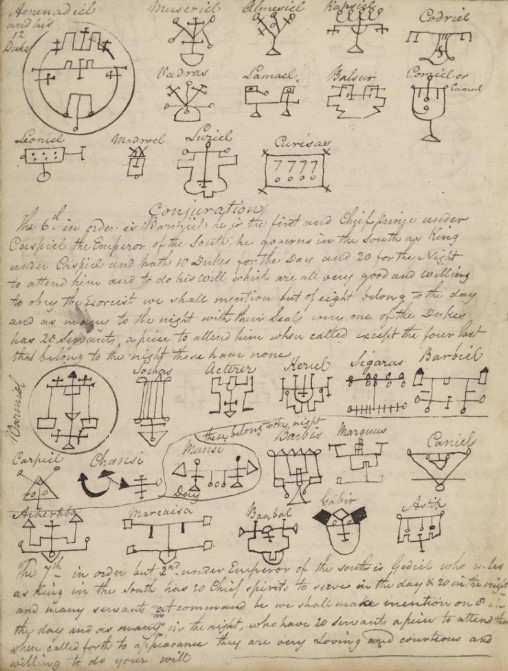 Amenadiel Museriel Almesiel Rapsiel Codriel
and his
12
Dukes
Vadras Lamael Balsur
Lamael
Luziel Curisas
7777
Conjuration
The 6th in order is he is the first and Chief prince under
Caspiel the Emperor of the South, he governs in the South as King
under Caspiel and hath 10 Dukes for the Day and 20 for the Night
to attend him and to do his Will which are all very good and Willing
to obey the Exorcist we shall mention but of eight belong to the day
and as many to the night with their Seals one of the Dukes
has 20 Servants apiece to attend him when called except the four last
that belong to the night these have none
Barmiel Sochas Acterer Keriel Sigaras Barbiel
these belong to the night
Chansi Mansi Barbis Marquus Caniel
Carpiel
Day
Acherbba Marcaisa Baabal Gabir Astib
The 7th in order but 2nd under Emperor of the South is Gediel who rules
as King in the South has 20 Chief spirits to serve in the day & 20 in the night
and many servants at command be we shall make mention on 8 in
the day and as many in the night, who have 20 servants apiece to attend them
when called forth to appearance they are very Loving and courteous and
willing to do your will